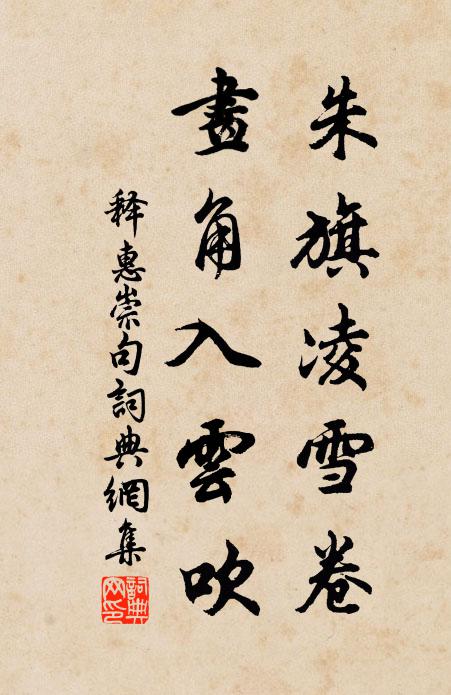 朱旗凌雪卷
畫角入雲吹
释惠崇句詞典網集
詞典網印